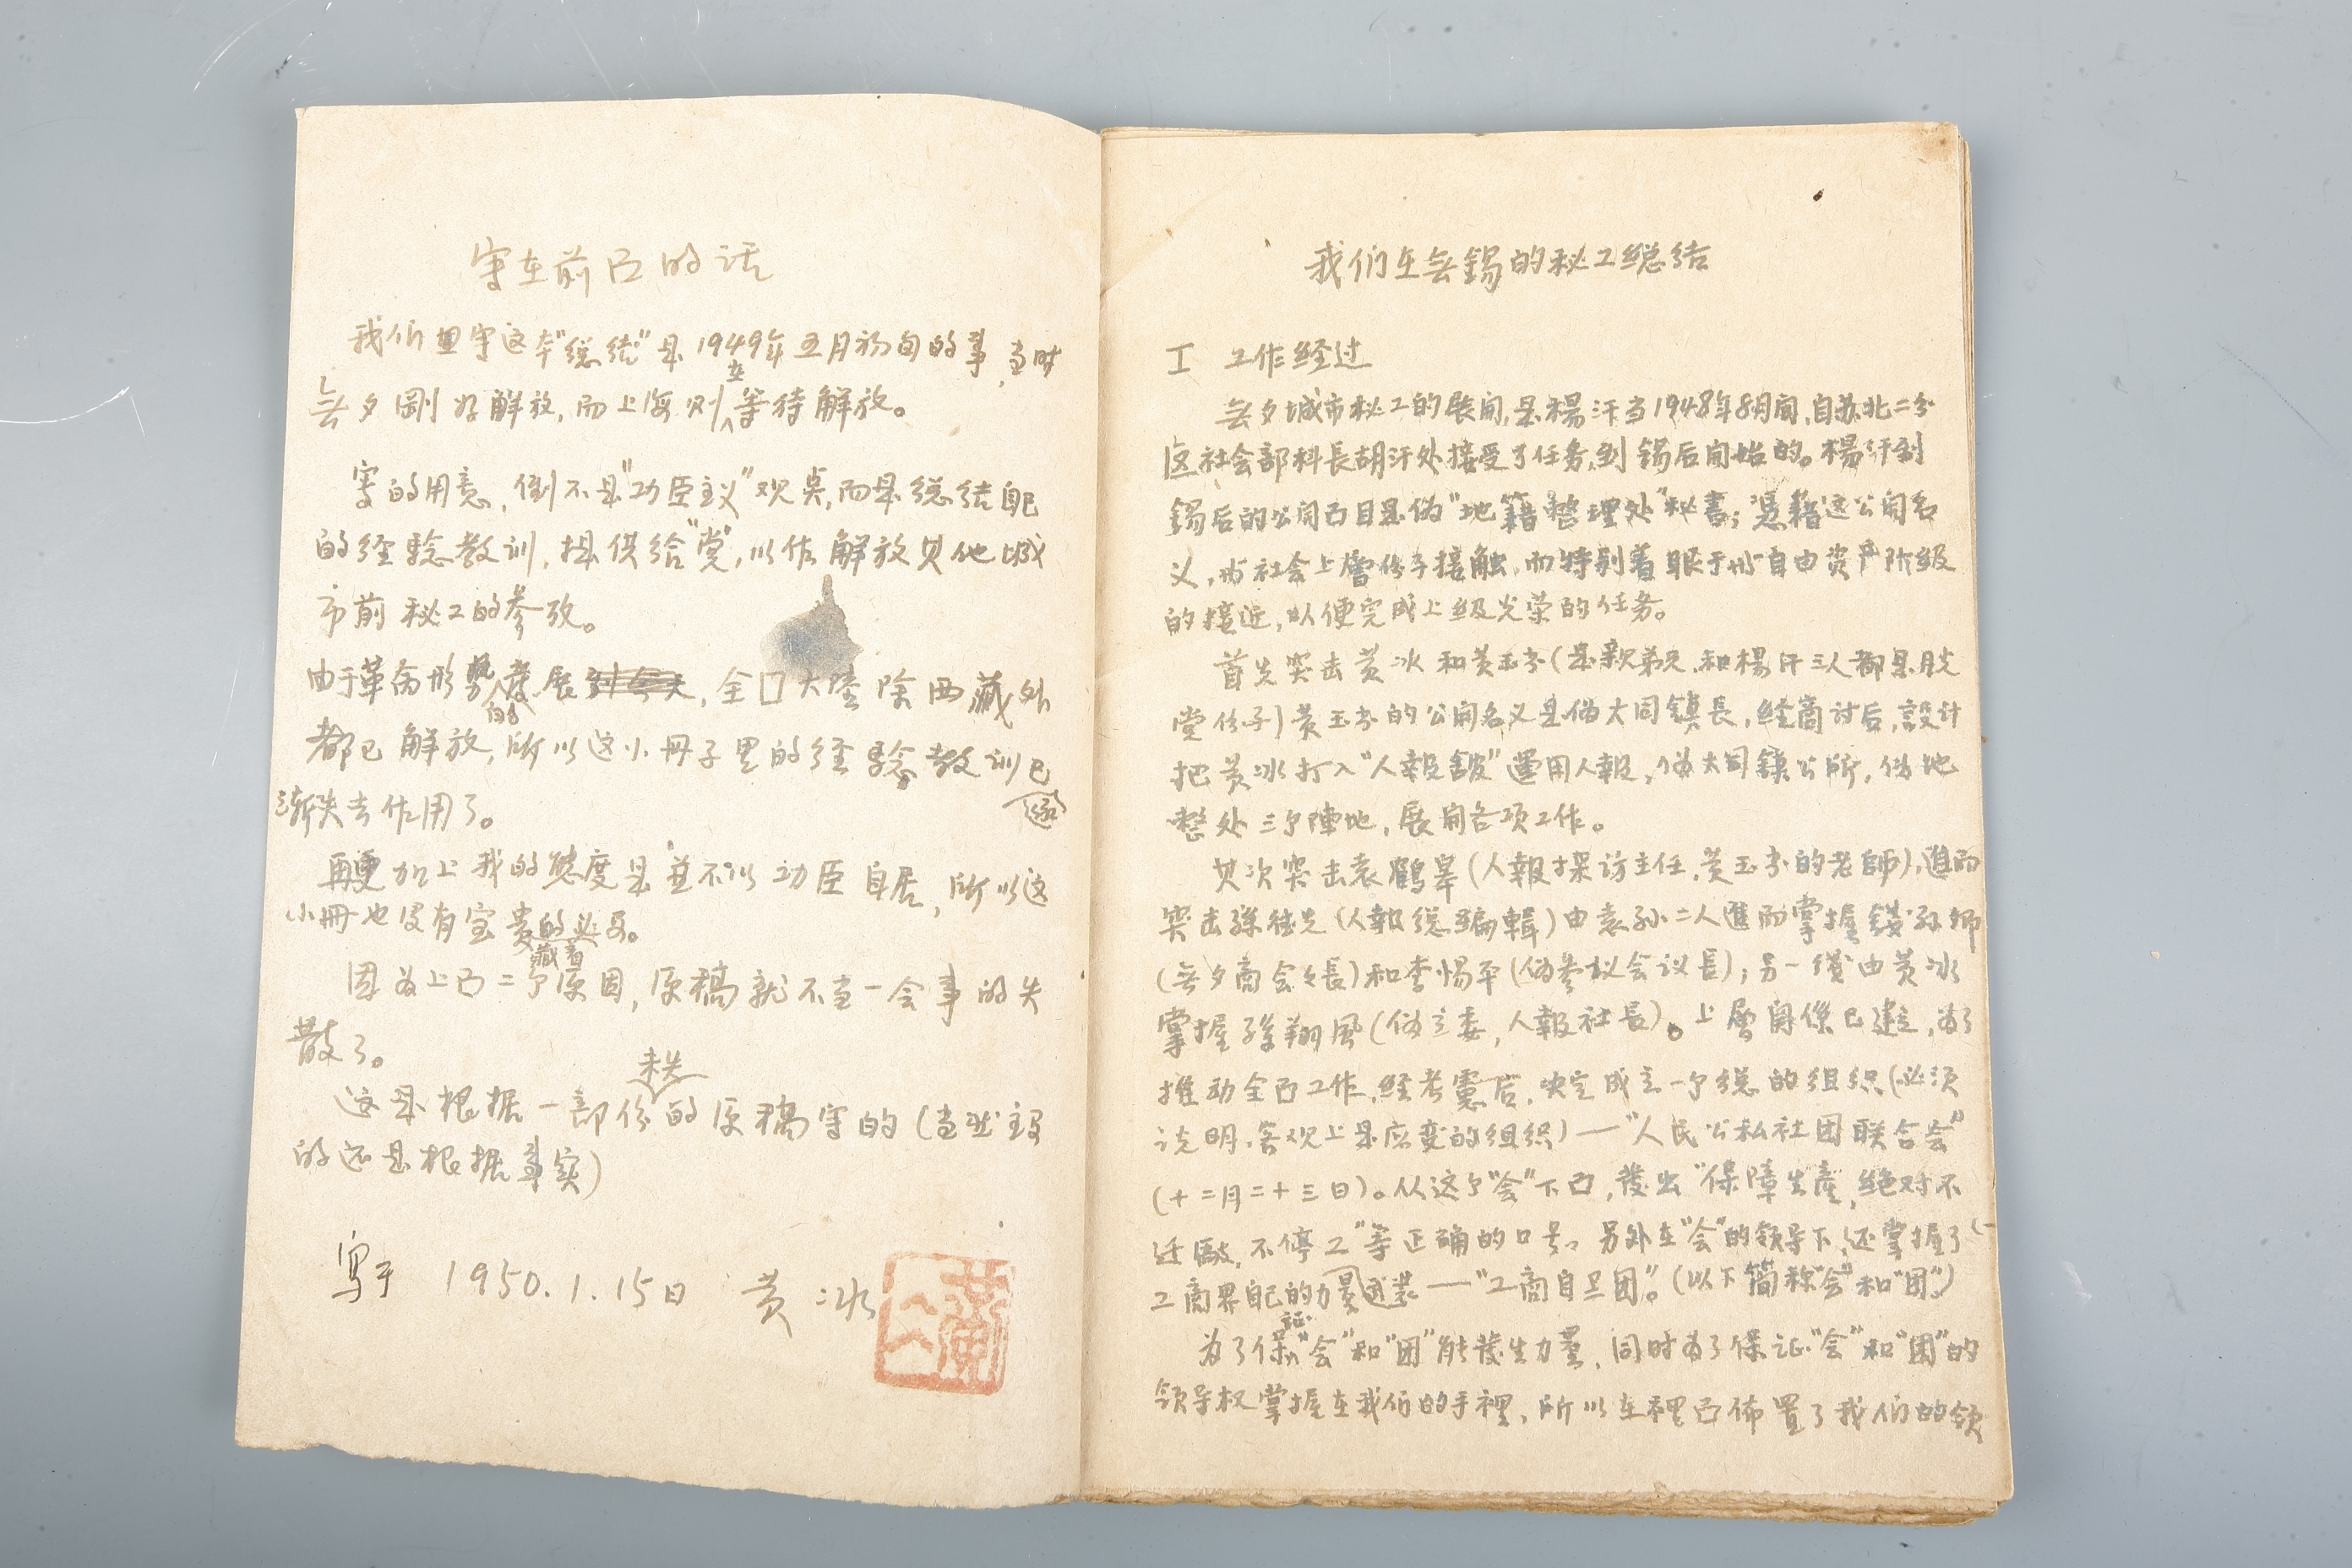 写在前面的话
我们想写这本"总结"是1949年五月初旬的事，当时
无夕刚好解放，而上海则在等待解放。
写的用意，倒不是"功臣主义"观点，而是总结自己
的经验教训，提供给"党"，以作解放其他城
市前秘工的参考。
由于革命形势的发展，全囗大陆除西藏外
都已解放，所以这小册子里的经验教训已逐
渐失去作用了。
再加上我的态度是並不以功臣自居，所以这
小册也没有宝贵的藏着必要。
因为上面二个原因，原稿就不当一会事的失
散了。
这是根据一部份未失的原稿写的（当然主要
的还是根据事实）
写于 1950.1.15日 黄冰
我们在无錫的秘工總结
I 工作经过
无夕城市秘工的展開，是楊汗当1948年8月间，自苏北二分
区社会部科長胡汗处接受了任务，到錫后開始的。楊汗到
錫后的公開面目是伪"地籍整理处"秘書；憑藉这公開名
义，与社会上層份子接触，而特别着眼于与自由资产阶级
的接近，以便完成上级光荣的任务。
首先突击黄冰和黄玉书（是亲弟兄，和楊汗三人都是脱
党份子）黄玉书的公開名义是伪大同鎮長，经商讨后，設计
把黄冰打入"人報館"運用人報，伪大同鎮公所，伪地
整处三个陣地，展開各项工作。
其次突击袁鶴皋（人報採访主任，黄玉书的老師），進而
突击孫荆先（人報總編輯）由袁孙二人進而掌握錢孙卿
（无夕商会会長）和李惕平（伪参议会议長）；另一綫由黄冰
掌握孫翔風（伪立委，人報社長）。上層関係已建立，为了
推动全面工作，经考慮后，决定成立一个總的组织（必须
说明，客观上是应变的组织）——"人民公私社团联合会"
（十二月二十三日）。从这个"会"下面，發出"保障生產，绝对不
迁廠，不停工"等正确的口号。另外在"会"的领导下，还掌握了
工商界自己的力量武装——"工商自卫团"。（以下简称"会"和"团"）
为了保证"会"和"团"能發生力量，同时为了保证"会"和"团"的
领导权掌握在我们的手裡，所以在裡面佈置了我们的领